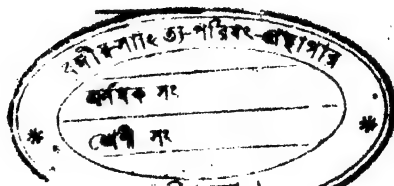 বঙ্গীয়-সাহিত্য-পরিষৎ-গ্রন্থাগার
বর্গক নং
শ্রেণী নং